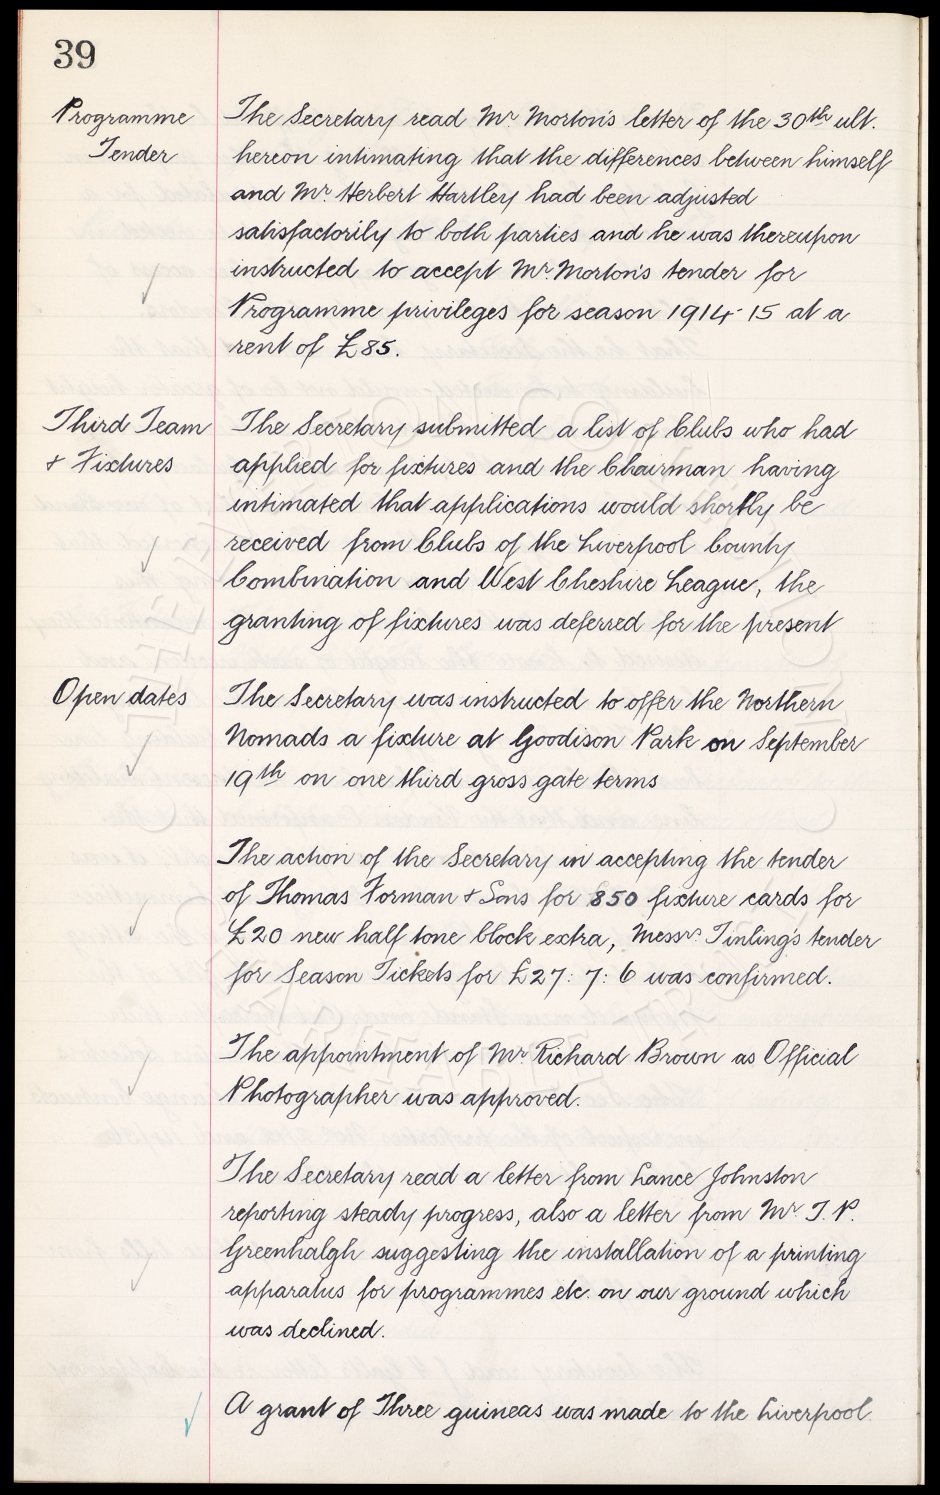 39
Programme
Tender
The Secretary read Mr. Morton's letter of the 30th ult.
hereon intimating that the differences between himself
and Mr. Herbert Hartley had been adjusted
satisfactorily to both parties and he was thereupon
instructed to accept Mr. Morton's tender for
Programme privileges for season 1914-15 at a
rent of £85.
Third Team
& Fixtures
The Secretary submitted a list of Clubs who had
applied for fixtures and the Chairman having
intimated that applications would shortly be
received from Clubs of the Liverpool County
Combination and West Cheshire League, the
granting of fixtures was deferred for the present
Open dates
The Secretary was instructed to offer the Northern
Nomads a fixture at Goodison Park on September
19th on one third gross gate terms
The action of the Secretary in accepting the tender
of Thomas Forman & Sons for 850 fixture cards for
£20 new half tone block extra, Messrs Tinling's tender
for Season Tickets for £27: 7: 6 was confirmed.
The appointment of Mr. Richard Brown as Official
Photographer was approved.
The Secretary read a letter from Lance Johnston
reporting steady progress, also a letter from Mr. T. P.
Greenhalgh suggesting the installation of a printing
apparatus for programmes etc. on our ground which
was declined.
A grant of Three guineas was made to the Liverpool